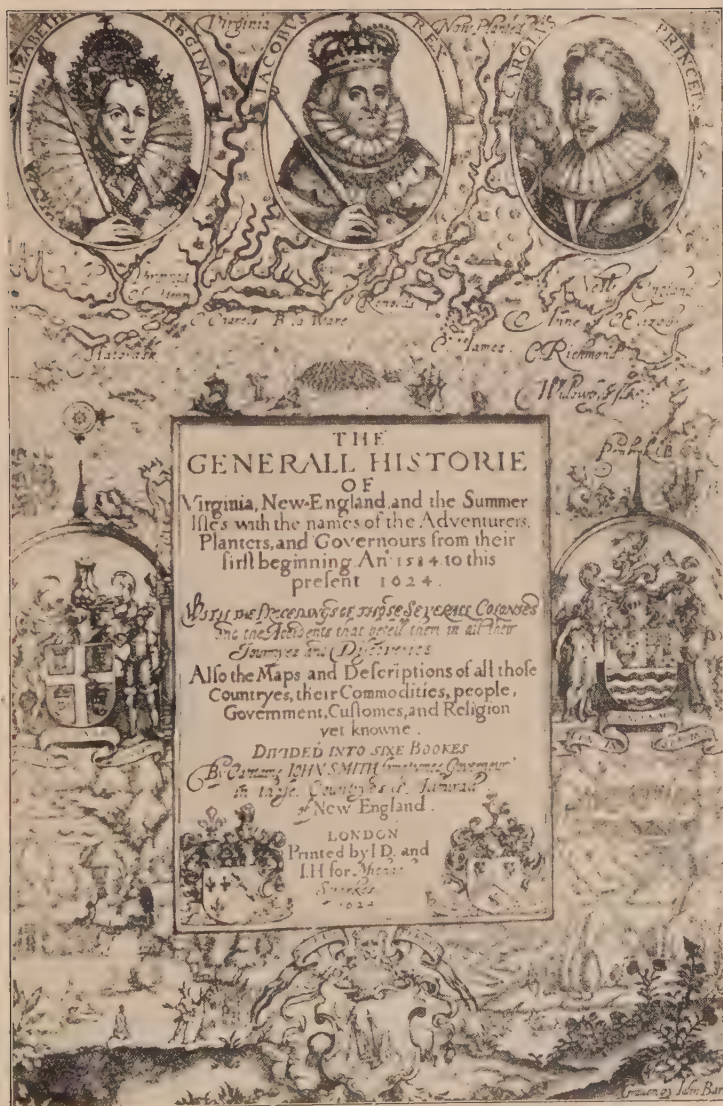 ELIZABETH REGINA
IACOBUS REX
CAROLUS PRINCEPS
Virginia
Now Planted
New England
C. Anne
C. Elizab
C. James
C. Richmond
C. Charels
Hatorask
Penbrok B
THE
GENERALL HISTORIE
OF
Virginia, New-England, and the Summer
Isles with the names of the Adventurers,
Planters, and Governours from their
first beginning An° 1584 to this
present 1624.
WITH THE PROCEDINGS OF THOSE SEVERALL COLONIES
and the Accidents that befell them in all their
Journyes and Discoveries
Also the Maps and Descriptions of all those
Countryes, their Commodities, people,
Government, Customes, and Religion
yet knowne.
DIVIDED INTO SIXE BOOKES
By Captaine IOHN SMITH sometymes Governour
in those Countryes & Admirall
of New England.
LONDON
Printed by I.D. and
I.H. for Michael
Sparkes
1624
Graven by Iohn Bar